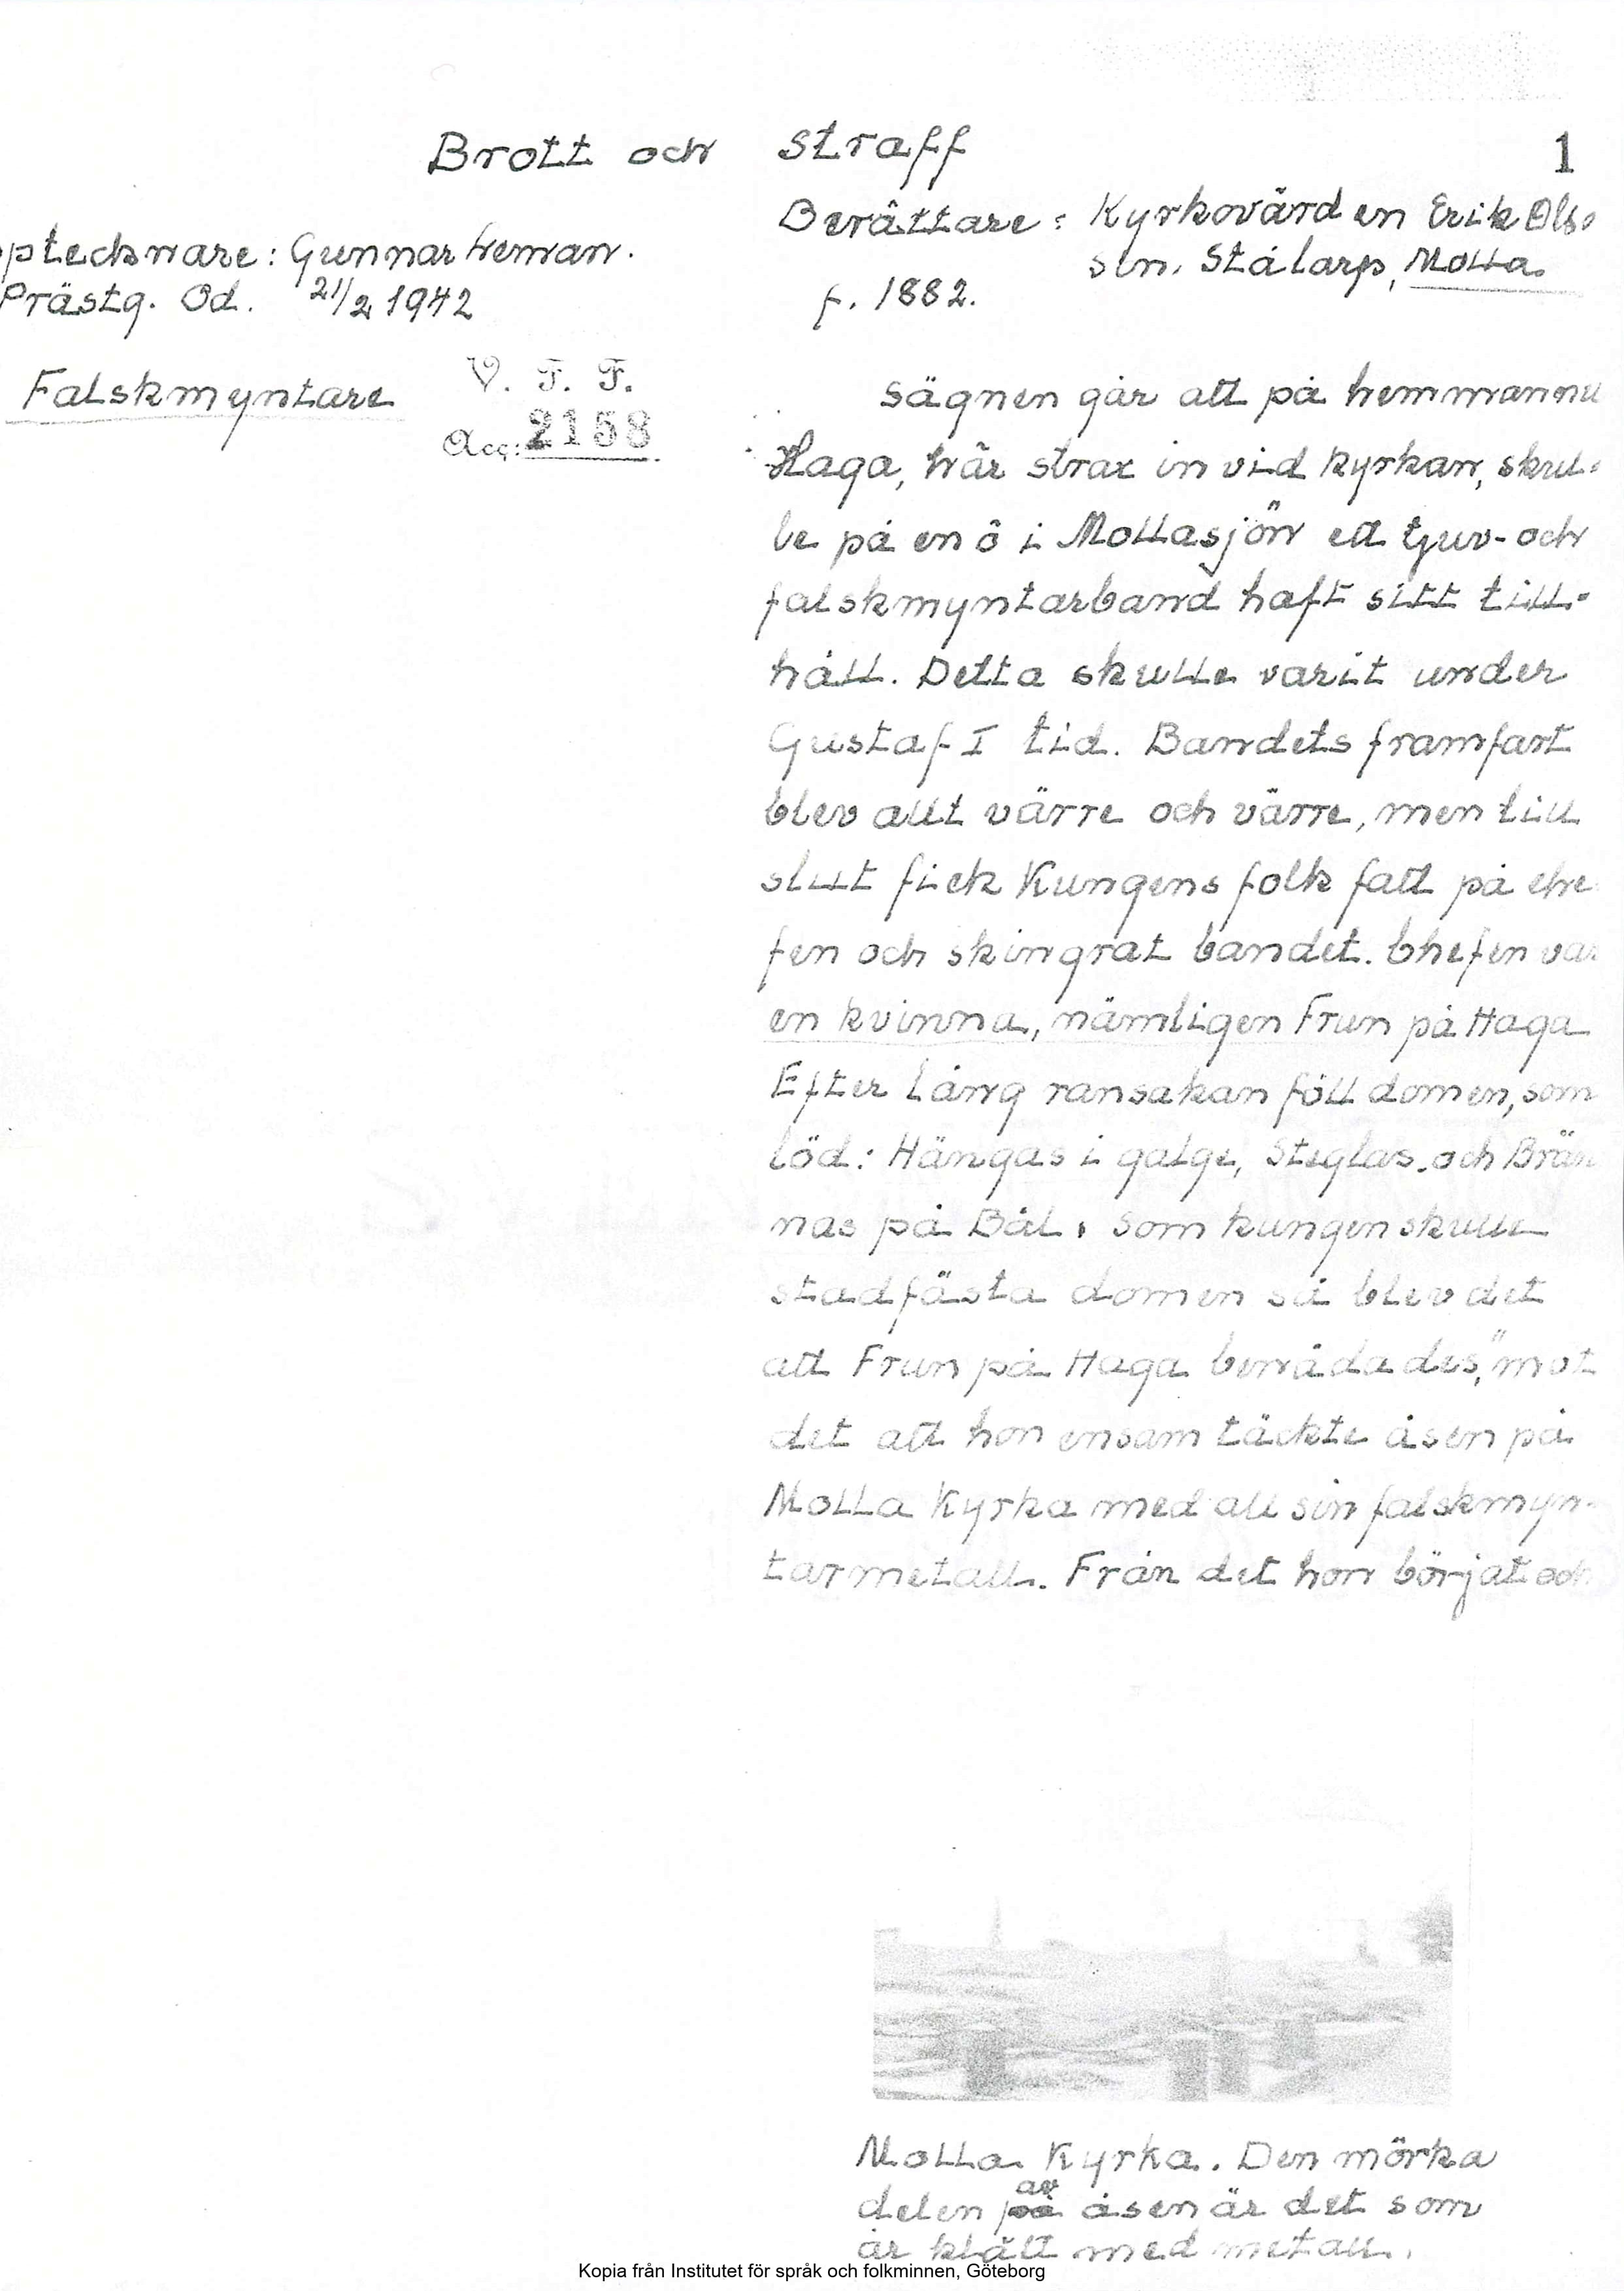 Brott och straff
1
Berättare: Kyrkovärden Erik Ols-
son. Stålarp, Molla.
f. 1882.
pptecknare: Gunnar Heman.
Prästg. Od. 21/2 1942
Falskmyntare
V. F. F.
Acc: 2158
Sägnen går att på hemmannu
Haga, här strax invid kyrkan, skul-
le på en ö i Mollasjön ett tjuv- och
falskmyntarband haft sitt till-
håll. Detta skulle varit under
Gustaf I tid. Bandets framfart
blev allt värre och värre, men till
slut fick Kungens folk fatt på che
fen och skingrat bandet. Chefen var
en kvinna, nämligen Frun på Haga
Efter lång ransakan föll domen, som
löd: Hängas i galge, Steglas och Brän
nas på Bål. Som kungen skulle
stadfästa domen så blev det
att Frun på Haga benådades," mot
det att hon ensam täckte åsen på
Molla Kyrka med all sin falskmyn-
tarmetall. Från det hon börjat och
Molla Kyrka. Den mörka
delen på av åsen är det som
är klätt med metall.
Kopia från Institutet för språk och folkminnen, Göteborg